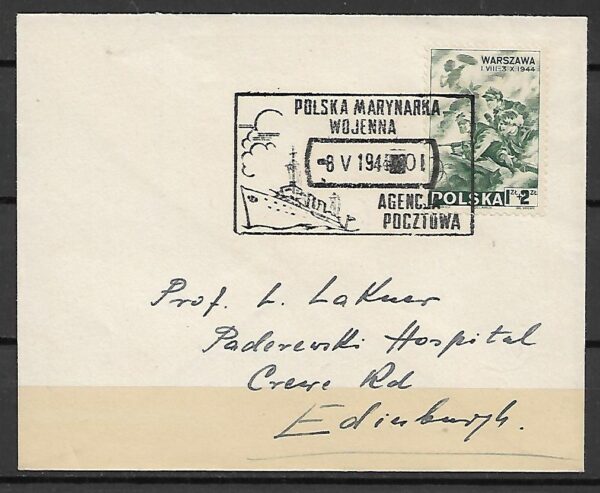 WARSZAWA
1 VIII-3 X 1944
POLSKA 1 ZŁ + 2 ZŁ
POLSKA MARYNARKA
WOJENNA
8 V 194
AGENCJA
POCZTOWA
Prof. L. Lakner
Paderewski Hospital
Crewe Rd
Edinburgh.